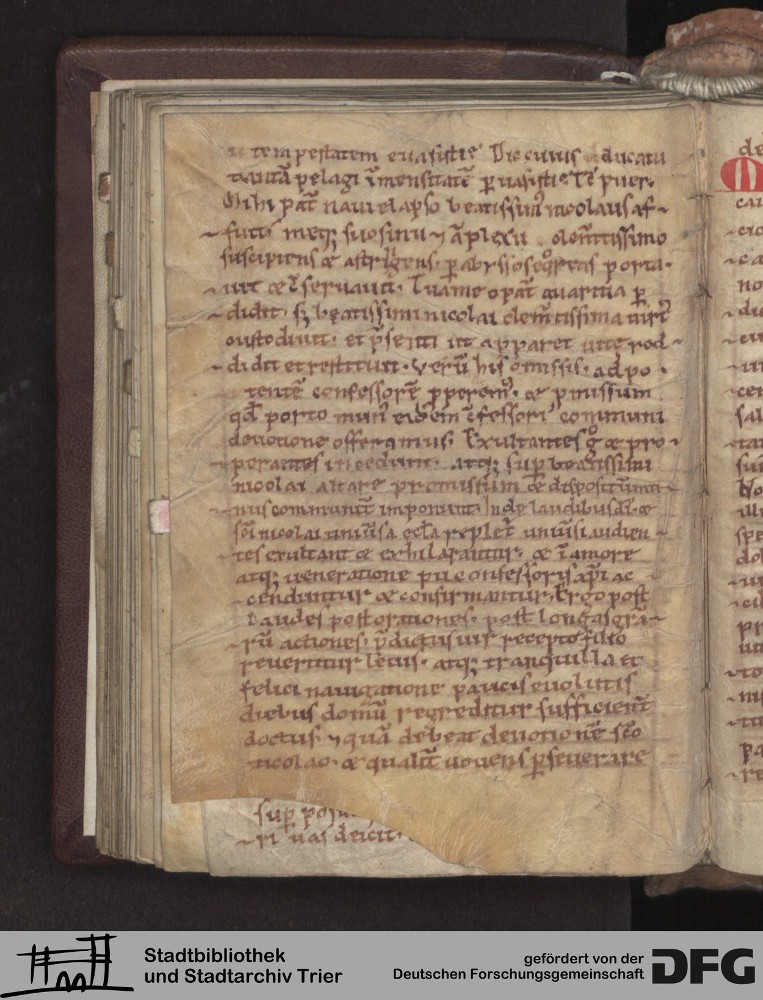 tempestatem euasisti? Dic cuius ducatu
tantā pelagi īmensitatē puasisti? Te puer.
Mihi pat naui elapso beatissim' nicolaus af-
fuit meq; suo sinu ⁊ āplexu clem̄tissimo
suscipiens & astringens. p abyssos eq̊reas porta-
uit & c̄seruauit. Tuam e o pat̄ quartua p
didit. s; beatissimi nicolai clem̄tissima uirt'
custodiuit. et p̄senti ut apparet uite red-
didit et restituit. Verū his omissis. ad po-
tentē confessorē pperem'. & pmissum
qd̄ porto mun' eidem c̄fessori communi
deuotione offeramus. Exultantes g̊ & pro-
perantes incedunt. atq; sup beatissimi
nicolai altare promissum & dispositum mu-
nus communit̄ imponunt. Inde laudibus dī. &
sc̄i nicolai uniūsa eccla replet̄. uniūsi audien-
tes exultant & exhilarantur. & ī amore
atq; ueneratione pii confessoris xp̄i ac-
cenduntur & confirmantur. Ergo post
laudes post orationes. post longas grā-
rū actiones. p̄dictus uir recepto filio
reuertitur letus. atq; tranquilla et
felici nauigatione paucis euolutis
diebus domū regreditur sufficient̄
doctus ⁊ quā debeat deuotionē sc̄o
nicolao. & qualit̄ uouens pseuerare
sup
ri uas deicit.
de
Stadtbibliothek
und Stadtarchiv Trier
gefördert von der
Deutschen Forschungsgemeinschaft
DFG